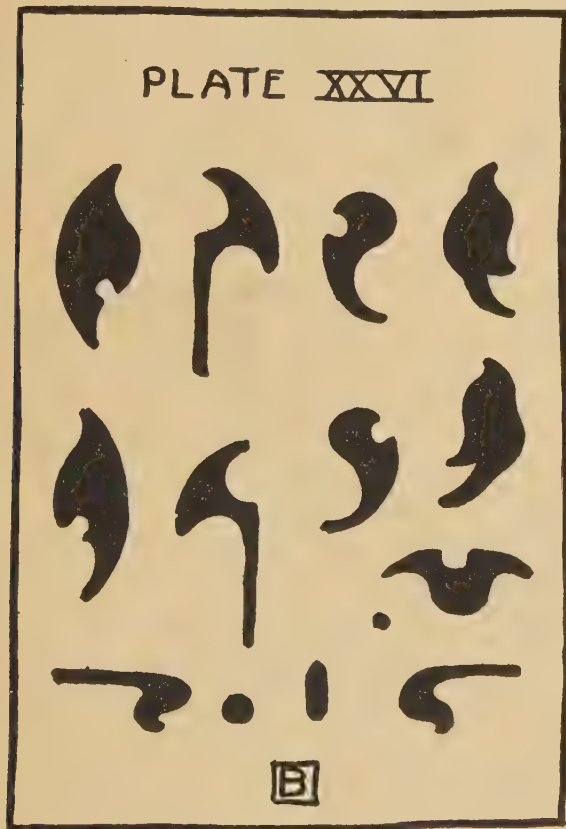 PLATE XXVI
B